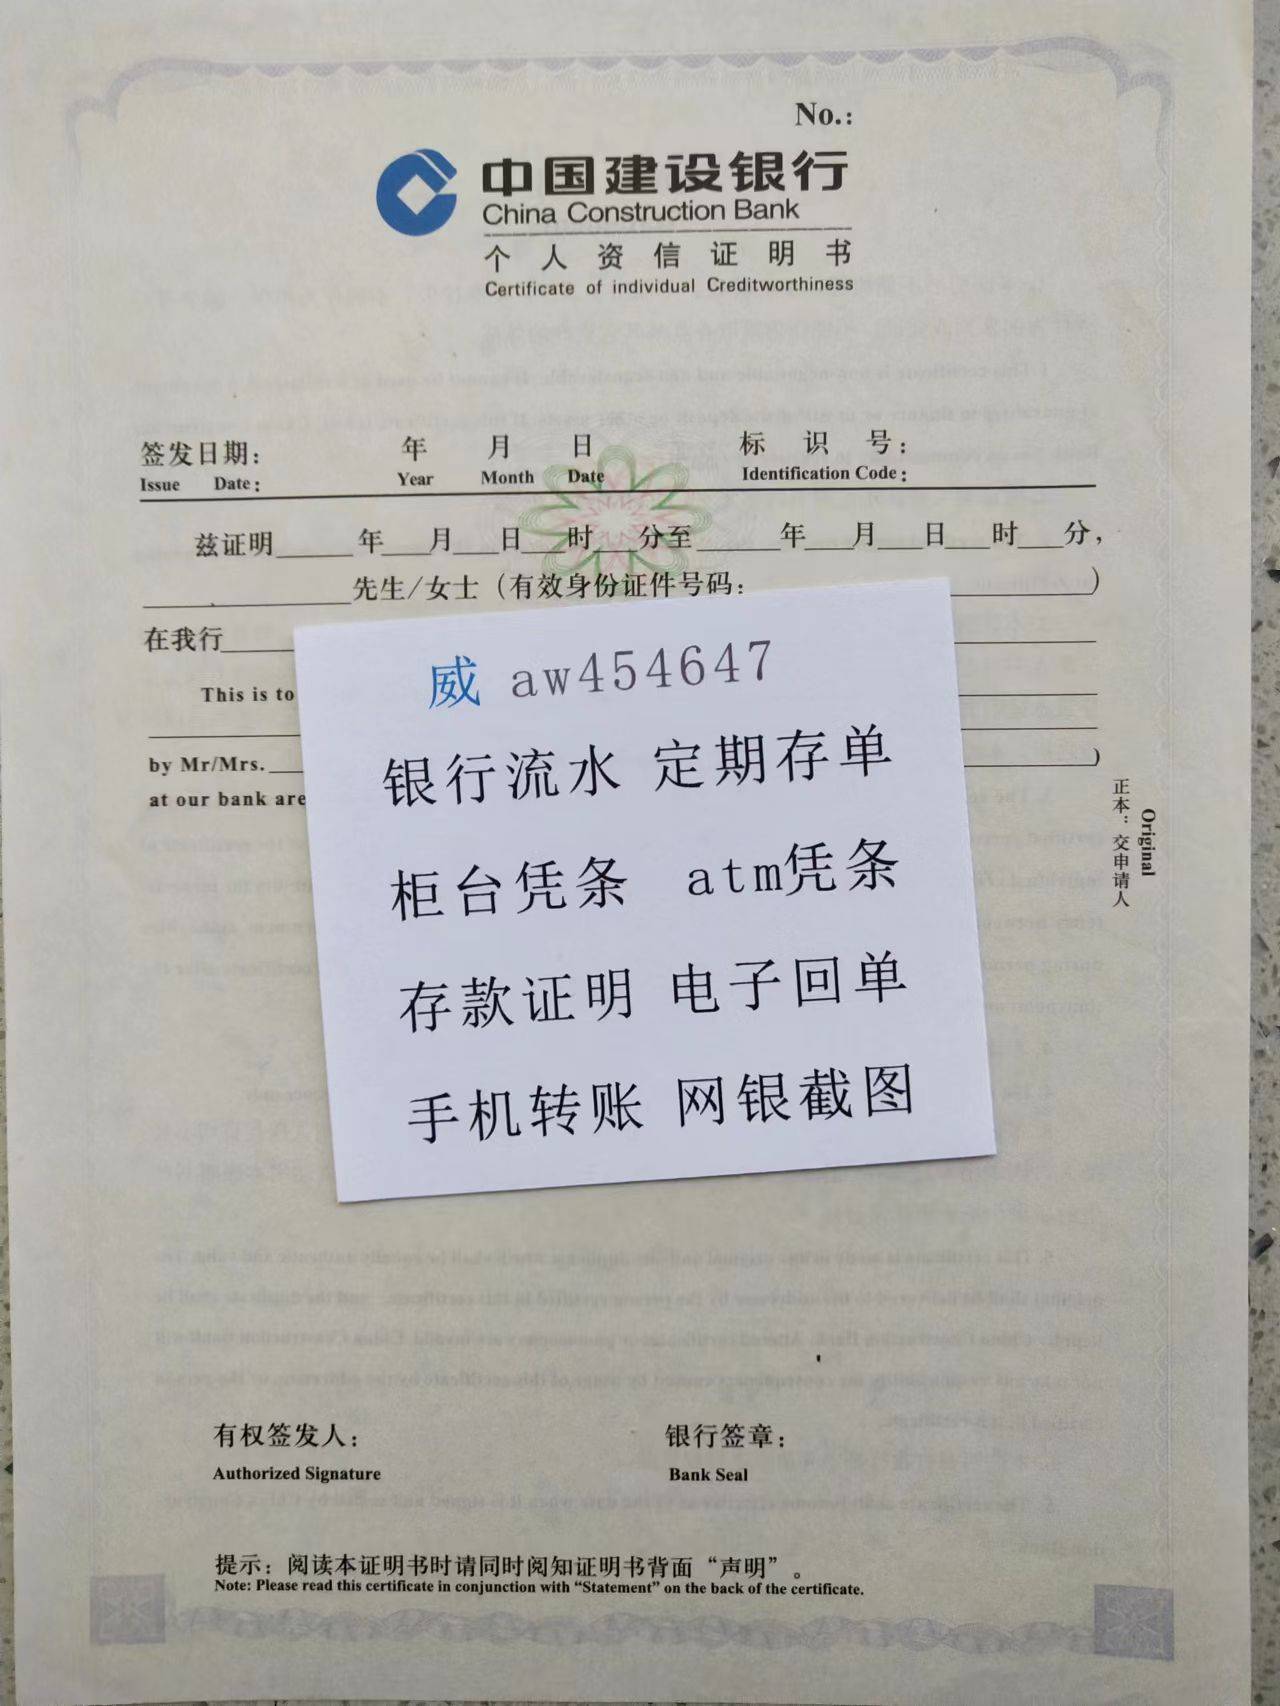 No.:
中国建设银行
China Construction Bank
个人资信证明书
Certificate of individual Creditworthiness
签发日期: 年 月 日 标 识 号:
Issue Date: Year Month Date Identification Code:
兹证明______年___月___日___时___分至______年___月___日___时___分,
______先生/女士(有效身份证件号码: )
在我行
This is to
by Mr/Mrs. )
at our bank are
威 aw454647
银行流水 定期存单
柜台凭条 atm凭条
存款证明 电子回单
手机转账 网银截图
正本:交申请人
Original
有权签发人: 银行签章:
Authorized Signature Bank Seal
提示:阅读本证明书时请同时阅知证明书背面“声明”。
Note: Please read this certificate in conjunction with “Statement” on the back of the certificate.